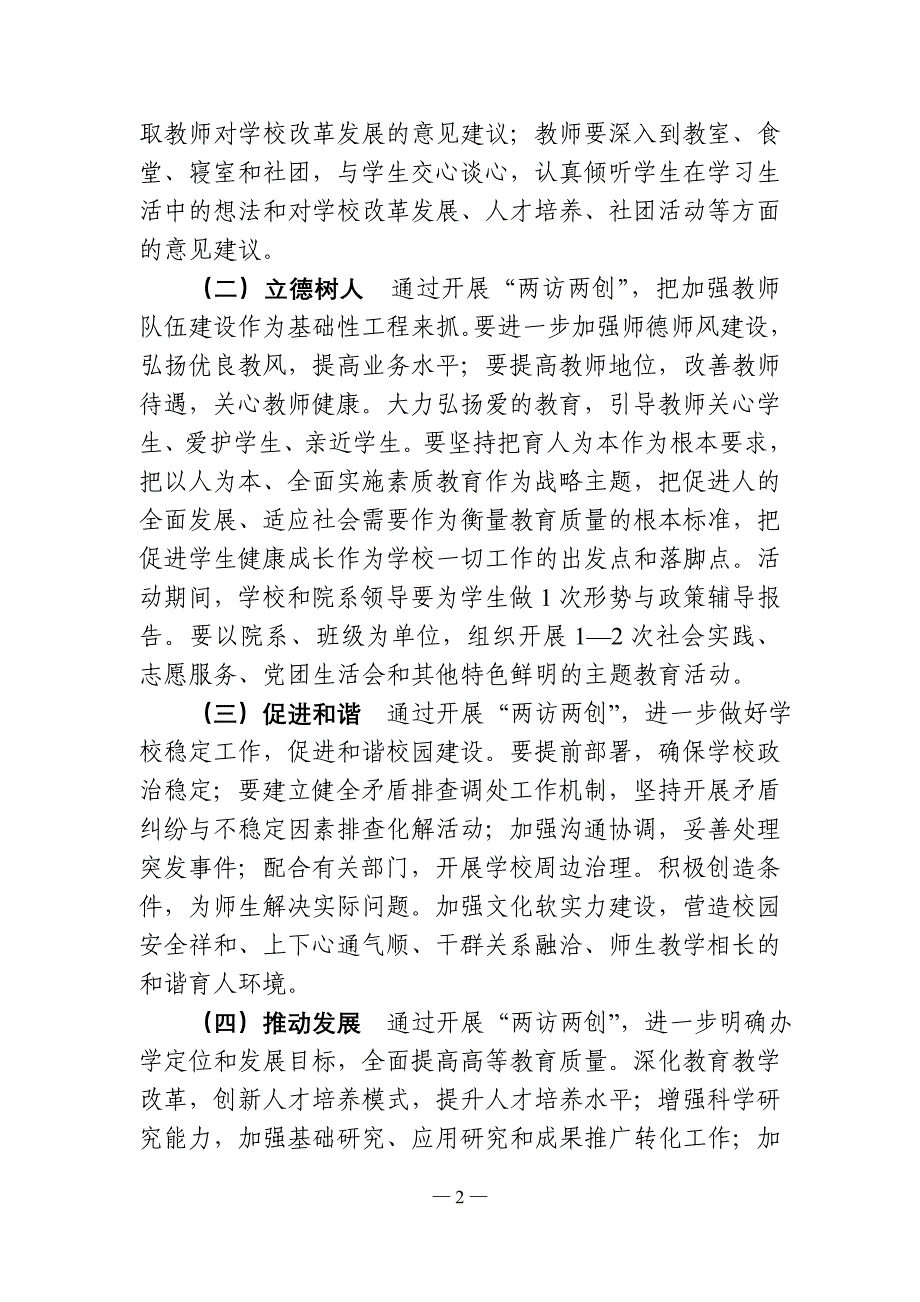 取教师对学校改革发展的意见建议；教师要深入到教室、食
堂、寝室和社团，与学生交心谈心，认真倾听学生在学习生
活中的想法和对学校改革发展、人才培养、社团活动等方面
的意见建议。
（二）立德树人　通过开展“两访两创”，把加强教师
队伍建设作为基础性工程来抓。要进一步加强师德师风建设，
弘扬优良教风，提高业务水平；要提高教师地位，改善教师
待遇，关心教师健康。大力弘扬爱的教育，引导教师关心学
生、爱护学生、亲近学生。要坚持把育人为本作为根本要求，
把以人为本、全面实施素质教育作为战略主题，把促进人的
全面发展、适应社会需要作为衡量教育质量的根本标准，把
促进学生健康成长作为学校一切工作的出发点和落脚点。活
动期间，学校和院系领导要为学生做1次形势与政策辅导报
告。要以院系、班级为单位，组织开展1—2次社会实践、
志愿服务、党团生活会和其他特色鲜明的主题教育活动。
（三）促进和谐　通过开展“两访两创”，进一步做好学
校稳定工作，促进和谐校园建设。要提前部署，确保学校政
治稳定；要建立健全矛盾排查调处工作机制，坚持开展矛盾
纠纷与不稳定因素排查化解活动；加强沟通协调，妥善处理
突发事件；配合有关部门，开展学校周边治理。积极创造条
件，为师生解决实际问题。加强文化软实力建设，营造校园
安全祥和、上下心通气顺、干群关系融洽、师生教学相长的
和谐育人环境。
（四）推动发展　通过开展“两访两创”，进一步明确办
学定位和发展目标，全面提高高等教育质量。深化教育教学
改革，创新人才培养模式，提升人才培养水平；增强科学研
究能力，加强基础研究、应用研究和成果推广转化工作；加
— 2 —